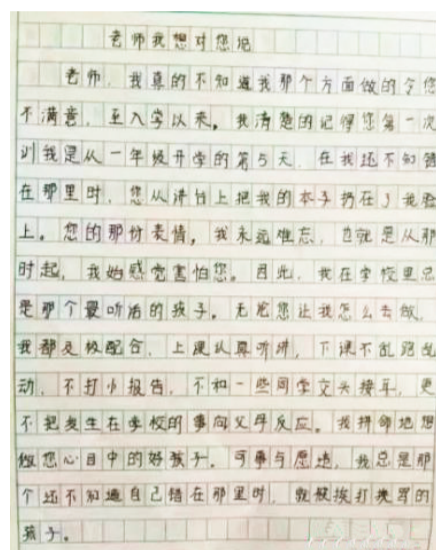 老师我想对您说
老师，我真的不知道我那个方面做的令您
不满意，至入学以来，我清楚的记得您第一次
训我是从一年级开学的第5天，在我还不知错
在那里时，您从讲台上把我的本子扔在了我脸
上。您的那份表情，我永远难忘，也就是从那
时起，我始感觉害怕您。因此，我在学校里总
是那个最听话的孩子。无论您让我怎么去做，
我都及极配合，上课认真听讲，下课不乱跑乱
动，不打小报告，不和一些同学交头接耳，更
不把发生在学校的事向父母反应。我拼命地想
做您心目中的好孩子。可事与愿违，我总是那
个还不知道自己错在那里时，就被挨打挨骂的
孩子。